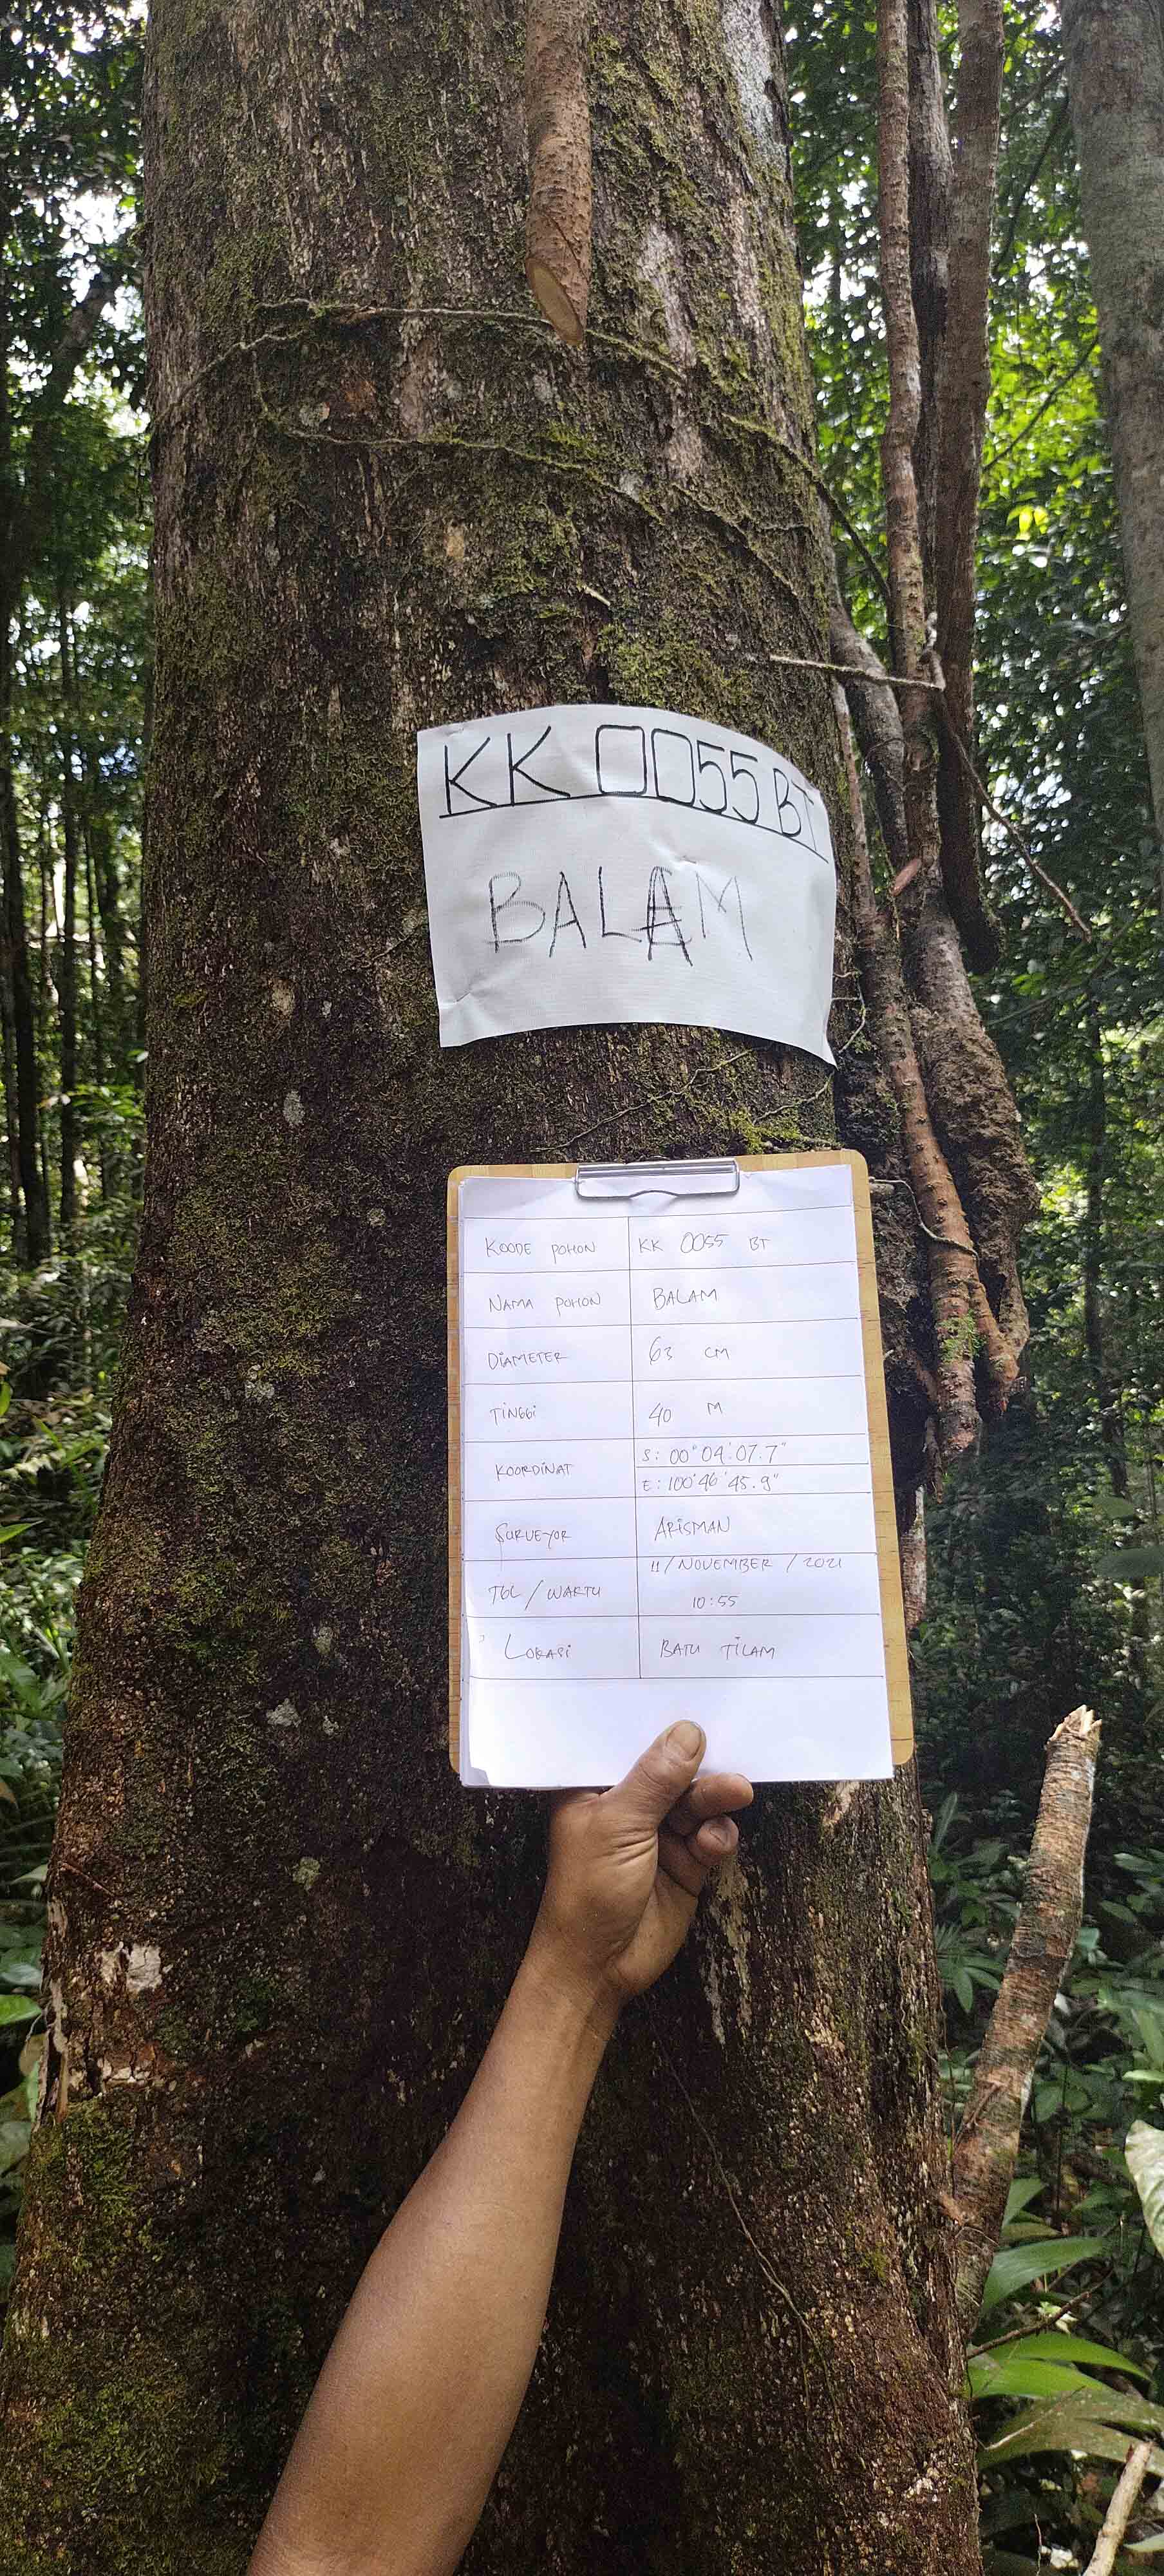 KK 0055 BT
BALAM
KOODE POHON KK 0055 BT
NAMA POHON BALAM
DIAMETER 63 CM
TINGGI 40 M
KOORDINAT S: 00° 04' 07.7"
E: 100° 46' 45.9"
SURVEYOR ARISMAN
TGL / WAKTU 11 / NOVEMBER / 2021
10:55
LOKASI BATU TILAM